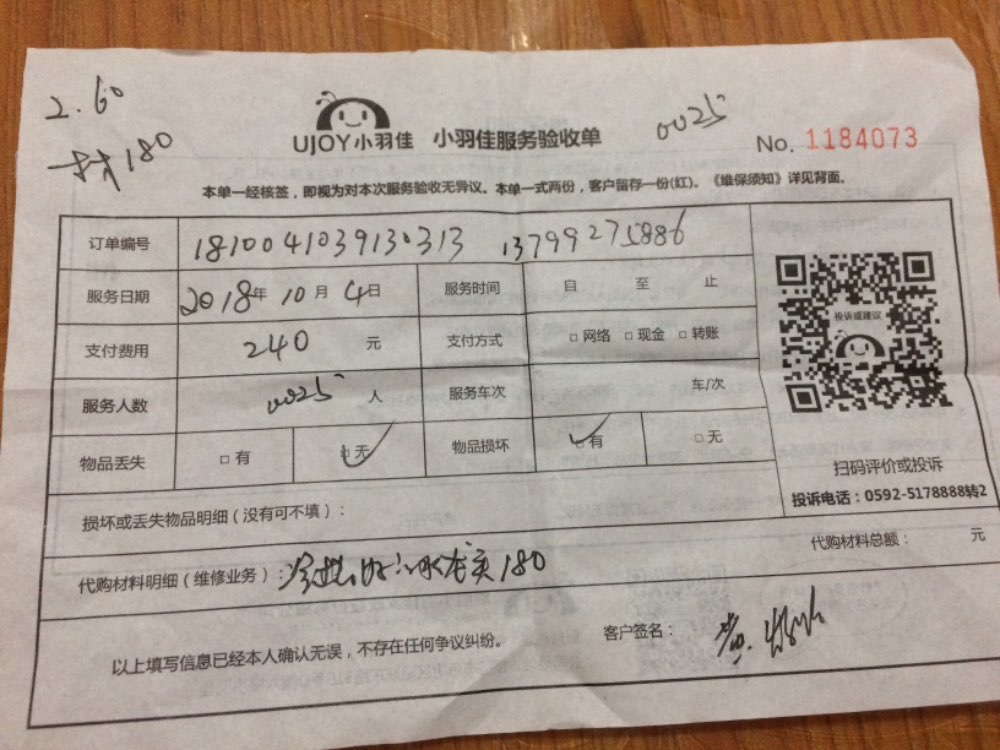 2.60
材180
UJOY小羽佳 小羽佳服务验收单
0025
No. 1184073
本单一经核签，即视为对本次服务验收无异议。本单一式两份，客户留存一份(红)。《维保须知》详见背面。
订单编号 1810041039130313 13799275886
服务日期 2018年 10月 4日 服务时间 自 至 止
支付费用 240 元 支付方式 □网络 □现金 □转账
服务人数 0025 人 服务车次 车/次
物品丢失 □有 □无 物品损坏 □有 □无
投诉或建议
扫码评价或投诉
投诉电话：0592-5178888转2
损坏或丢失物品明细（没有可不填）：
代购材料明细（维修业务）： 180
代购材料总额： 元
以上填写信息已经本人确认无误，不存在任何争议纠纷。
客户签名：